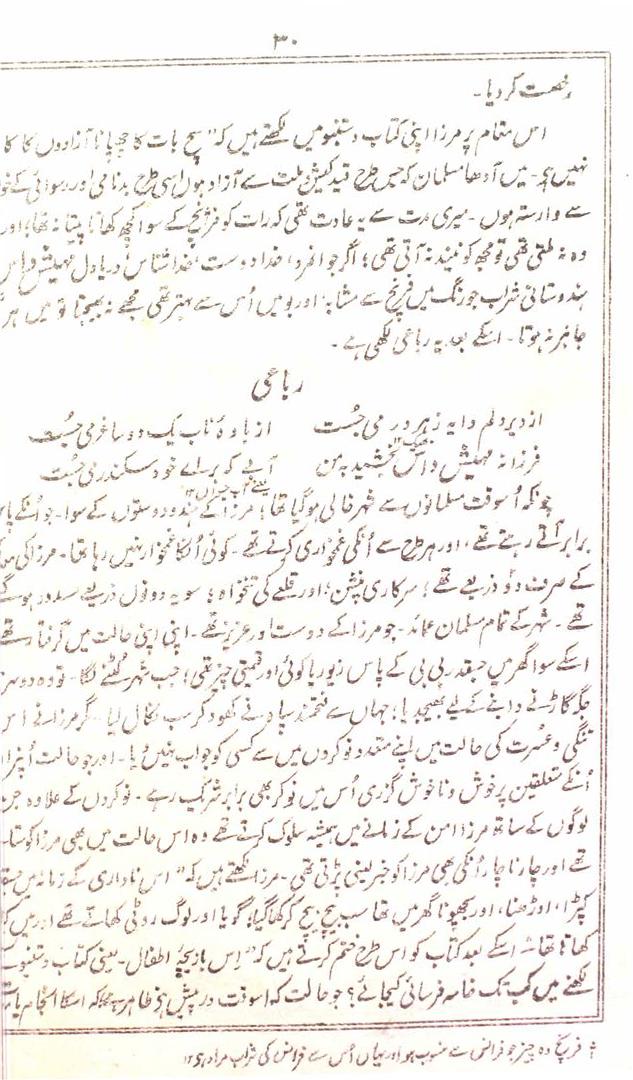 ۳۰
رخصت کردیا۔
اس مقام پر مرزا اپنی کتاب دستنبو میں لکھتے ہیں کہ " سچ بات کا چھپانا آزادوں کا کا
نہیں ہی۔ میں آدھا مسلمان کہ جس طرح قید کیش و ملت سے آزاد ہوں اسی طرح بدنامی اور رسوائی کے خو
سے وارستہ ہوں۔ میری مدت سے یہ عادت تھی کہ رات کو فرنچ کے سوا کچھ کھاتا پیتا نہ تھا؛ اور
وہ نہ ملتی تھی تو مجھ کو نیند نہ آتی تھی؛ اگر جوانمرد، خدا دوست، خدا شناس، دریا دل مہیش داس
ہندوستانی شراب جو رنگ میں فرنچ سے مشابہ، اور بو میں اُس سے بہتر تھی مجھے نہ بھیجتا تو میں ہر
جانبر نہ ہوتا۔ اسکے بعد یہ رباعی لکھی ہے۔
رباعی
از دیر دلم دایہ ز ہر در می جست از بادۂ ناب یک دو ساغر می جست
فرزانہ مہیش داس بخشید بہ من آبے کہ برائے خود سکندر می جست
چونکہ اُسوقت مسلمانوں سے شہر خالی ہو گیا تھا؛ مرزا کے ہندو دوستوں کے سوا۔ جو اُنکے پاس
برابر آتے رہتے تھے، اور ہر طرح سے اُنکی غمخواری کرتے تھے۔ کوئی اُنکا غمخوار نہیں رہا تھا۔ مرزا کی
کے صرف دو ذریعے تھے؛ سرکاری پنشن؛ اور قلعے کی تنخواہ؛ سو یہ دونوں ذریعے مسدود ہو گئے
تھے۔ شہر کے تمام مسلمان عمائد۔ جو مرزا کے دوست اور عزیز تھے۔ اپنی اپنی حالت میں گرفتار تھے
اسکے سوا گھر میں جسقدر بی بی کے پاس زیور یا کوئی اور قیمتی چیز تھی؛ جب شہر لُٹنے لگا۔ تو وہ دوسر
جگہ گاڑنے دابنے کے لیے بھیجدیا؛ جہاں سے فتحمند سپاہ نے کھود کر سب نکال لیا۔ مگر مرزا نے اس
تنگی و عسرت کی حالت میں اپنے متعدد نوکروں میں سے کسی کو جواب نہیں دیا۔ اور جو حالت اُنپر ا
اُنکے متعلقین پر خوش و ناخوش گزری اُس میں نوکر بھی برابر شریک رہے۔ نوکروں کے علاوہ جن
لوگوں کے ساتھ مرزا امن کے زمانے میں ہمیشہ سلوک کرتے تھے وہ اس حالت میں بھی مرزا کو ستا
تھے اور چار ناچار اُنکی بھی مرزا کو خبر لینی پڑتی تھی۔ مرزا لکھتے ہیں کہ " اس ناداری کے زمانہ میں جسق
کپڑا، اوڑھنا، اور بچھونا گھر میں تھا سب بیچ بیچ کر کھا گیا؛ گویا اور لوگ روٹی کھاتے تھے اور میں ک
کھاتا تھا" اسکے بعد کتاب کو اس طرح ختم کرتے ہیں کہ " اس بازیچۂ اطفال۔ یعنی کتاب دستنبو کے
لکھنے میں کب تک خامہ فرسائی کیجائے؟ جو حالت کہ اسوقت درپیش ہی ظاہر ہے کہ اسکا انجام یا
فرنچ وہ چیز جو فرانس سے منسوب ہو اور یہاں اُس سے فرانس کی شراب مراد ہی ۱۲